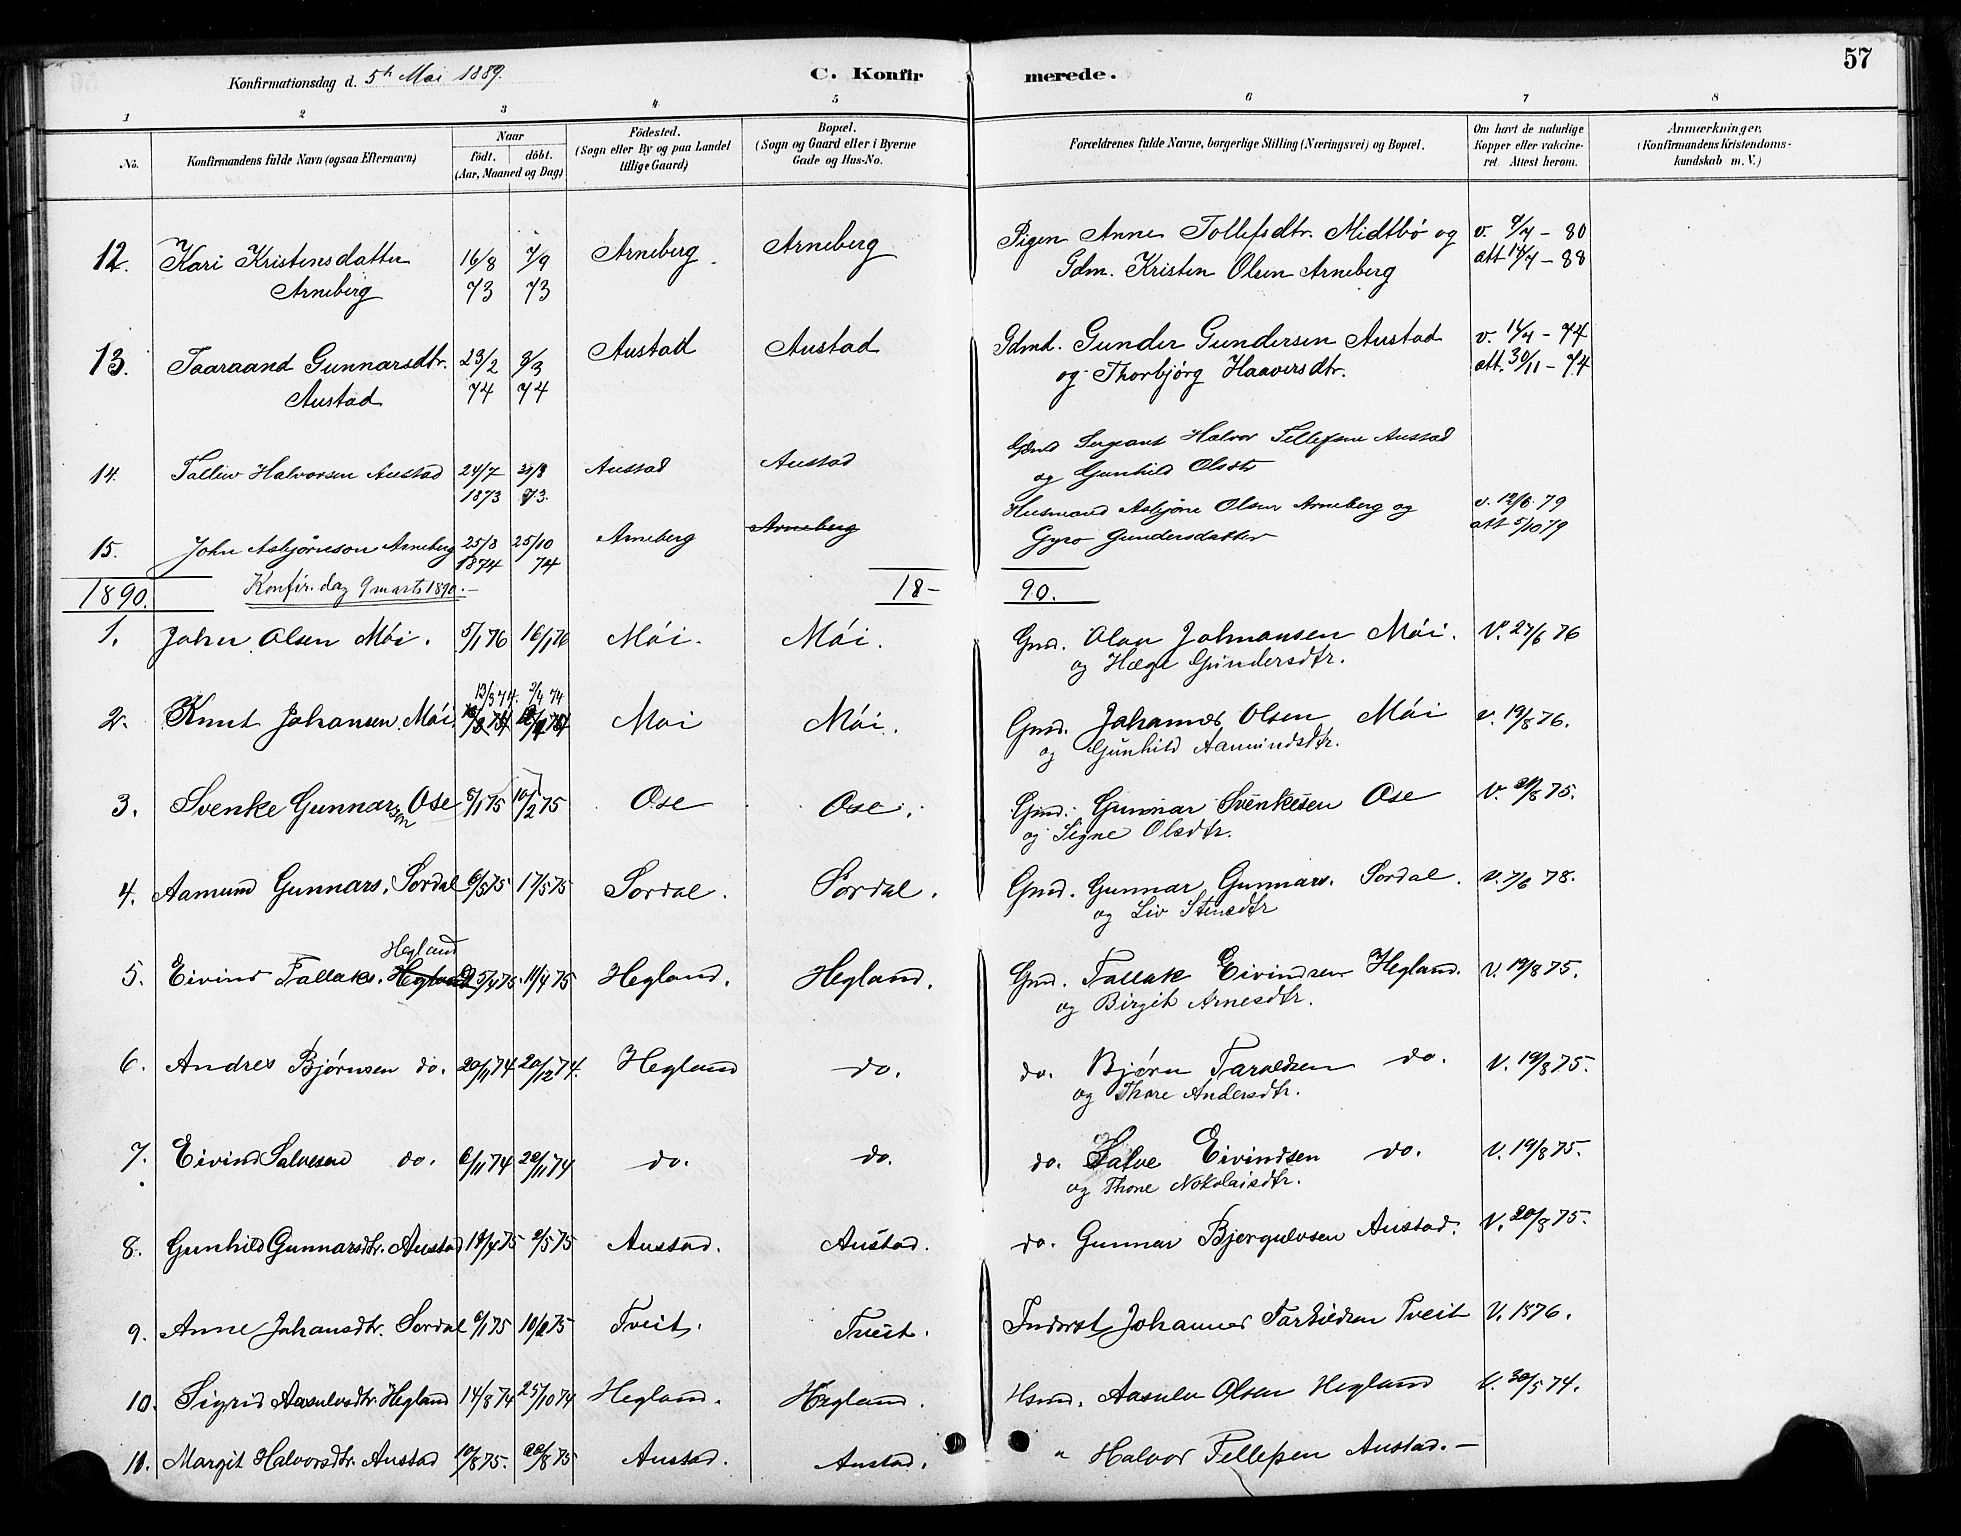 57
Konfirmationsdag d. 5te Mai 1889.
C. Konfirmerede.
1 2 3 4 5 6 7 8
No. Konfirmandens fulde Navn (ogsaa Efternavn) Naar födt. döbt. (Aar, Maaned og Dag) Födested. (Sogn eller By og paa Landet tillige Gaard) Bopæl. (Sogn og Gaard eller i Byerne Gade og Hus-No. Forældrenes fulde Navne, borgerlige Stilling (Næringsvei) og Bopæl. Om havt de naturlige Kopper eller vakcineret. Attest herom. Anmærkninger. (Konfirmandens Kristendomskundskab m. V.)
12. Kari Kristensdatter 16/8 7/9 Arneberg Arneberg Pigen Anne Tollefsdtr. Midtbø og v. 9/7 - 80
Arneberg 73 73 Gdm. Kristen Olsen Arneberg att 14/7 - 88
13. Taaraand Gunnarsdtr. 23/2 8/3 Austad Austad Gdmd. Gunder Gundersen Austad v. 11/7 - 74
Austad 74 74 og Thorbjørg Haaversdtr. att. 30/11 - 74
14. Tallev Halvorsen Austad 24/7 31/8 Austad Austad Gdmd Sergeant Halvor Tellefsen Austad
1873 73. og Gunhild Olsdtr
15. John Asbjørnson Arneberg 25/8 25/10 Arneberg Arneberg Husmand Asbjørn Olsen Arneberg og v. 12/6 79
1874 74 Gyro Gundersdatter att 5/10 79
1890. Konfir. dag 9 marts 1890. 18-90.
1. Johan Olsen Mói. 5/1 76 16/1 76 Mói. Mói. Gmd. Olav Johansen Mói. V. 27/6 76
og Hæge Gundersdtr.
13/3 74. 2/4 74
2. Knut Johansen Mói. Moi Mói. Gmd. Johannes Olsen Mói v. 19/8 76.
og Gunhild Aamundsdtr.
3. Svenke Gunnarsson Ose 5/1 75 10/2 75 Ose Ose. Gmd. Gunnar Svenkesen Ose V. 21/8 75.
og Signe Olsdtr.
4. Aamund Gunnars. Sordal 6/5 75 17/5 75 Sordal. Sordal. Gmd. Gunnar Gunnars. Sordal. V. 7/6 78.
og Liv Stensdtr
Hegland
5. Eivind Tallaks. Hegland 5/4 75. 11/4 75 Hegland. Hegland. Gmd. Tallak Eivindsen Hegland. V. 19/8 75.
og Birgit Arnesdtr.
6. Andres Bjørnsen do. 20/11 74 20/12 74. Hegland do. do. Bjørn Taraldsen do. V. 19/8 75.
og Thore Andersdtr.
7. Eivind Salvesen do. 6/11 74 22/11 74 do. do. do. Salve Eivindsen do. V. 19/8 75.
og Thone Nokolaisdtr.
8. Gunhild Gunnarsdtr. Austad 18/4 75 2/5 75 Austad. Austad. do. Gunnar Bjorgulvsen Austad. V. 20/8 75.
9. Anne Johansdtr. Sordal 6/1 75 10/2 75 Tveit. Tveit. Inderst Johannes Tarkildsen Tveit V. 1876.
10. Sigrid Aasulvsdtr. Hegland 14/8 74 25/10 74 Hegland. Hegland. Hsmd. Aasulv Olsen Hegland V. 30/5 74.
11. Margit Halvorsdtr. Austad 10/8 75. 22/8 75 Austad. Austad. " Halvor Tellefsen Austad. -